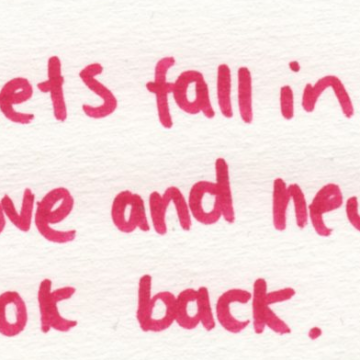 ets fall in
ve and nev
ok back.